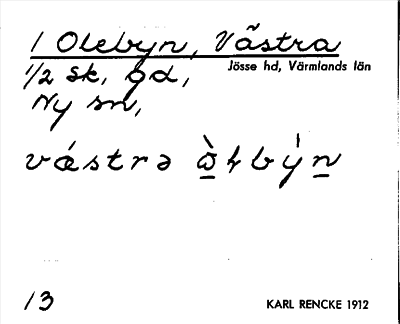 1 Olebyn, Västra
Jösse hd, Värmlands län
1/2 sk, gd,
Ny sn,
vǽstrə ò̠ɫbẏ́n̠
13 KARL RENCKE 1912